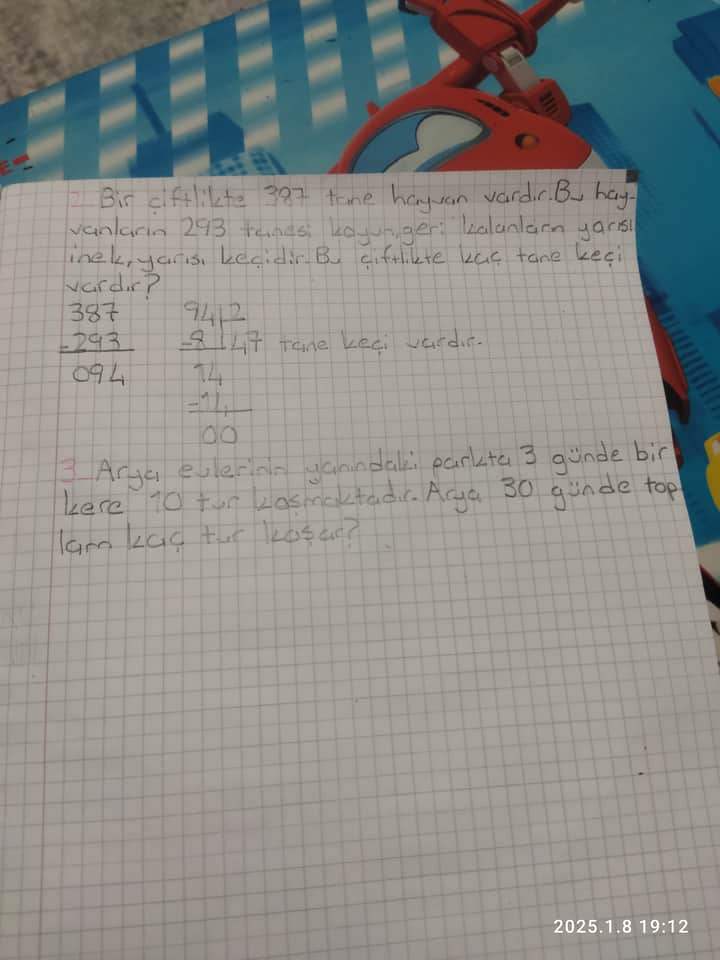 2- Bir çiftlikte 387 tane hayvan vardır. Bu hay-
vanların 293 tanesi koyun, geri kalanların yarısı
inek, yarısı keçidir. Bu çiftlikte kaç tane keçi
vardır?
387 94 2
-293 -8 47 tane keçi vardır.
094 14
-14
00
3- Arya evlerinin yanındaki parkta 3 günde bir
kere 10 tur koşmaktadır. Arya 30 günde top
lam kaç tur koşar?
2025.1.8 19:12